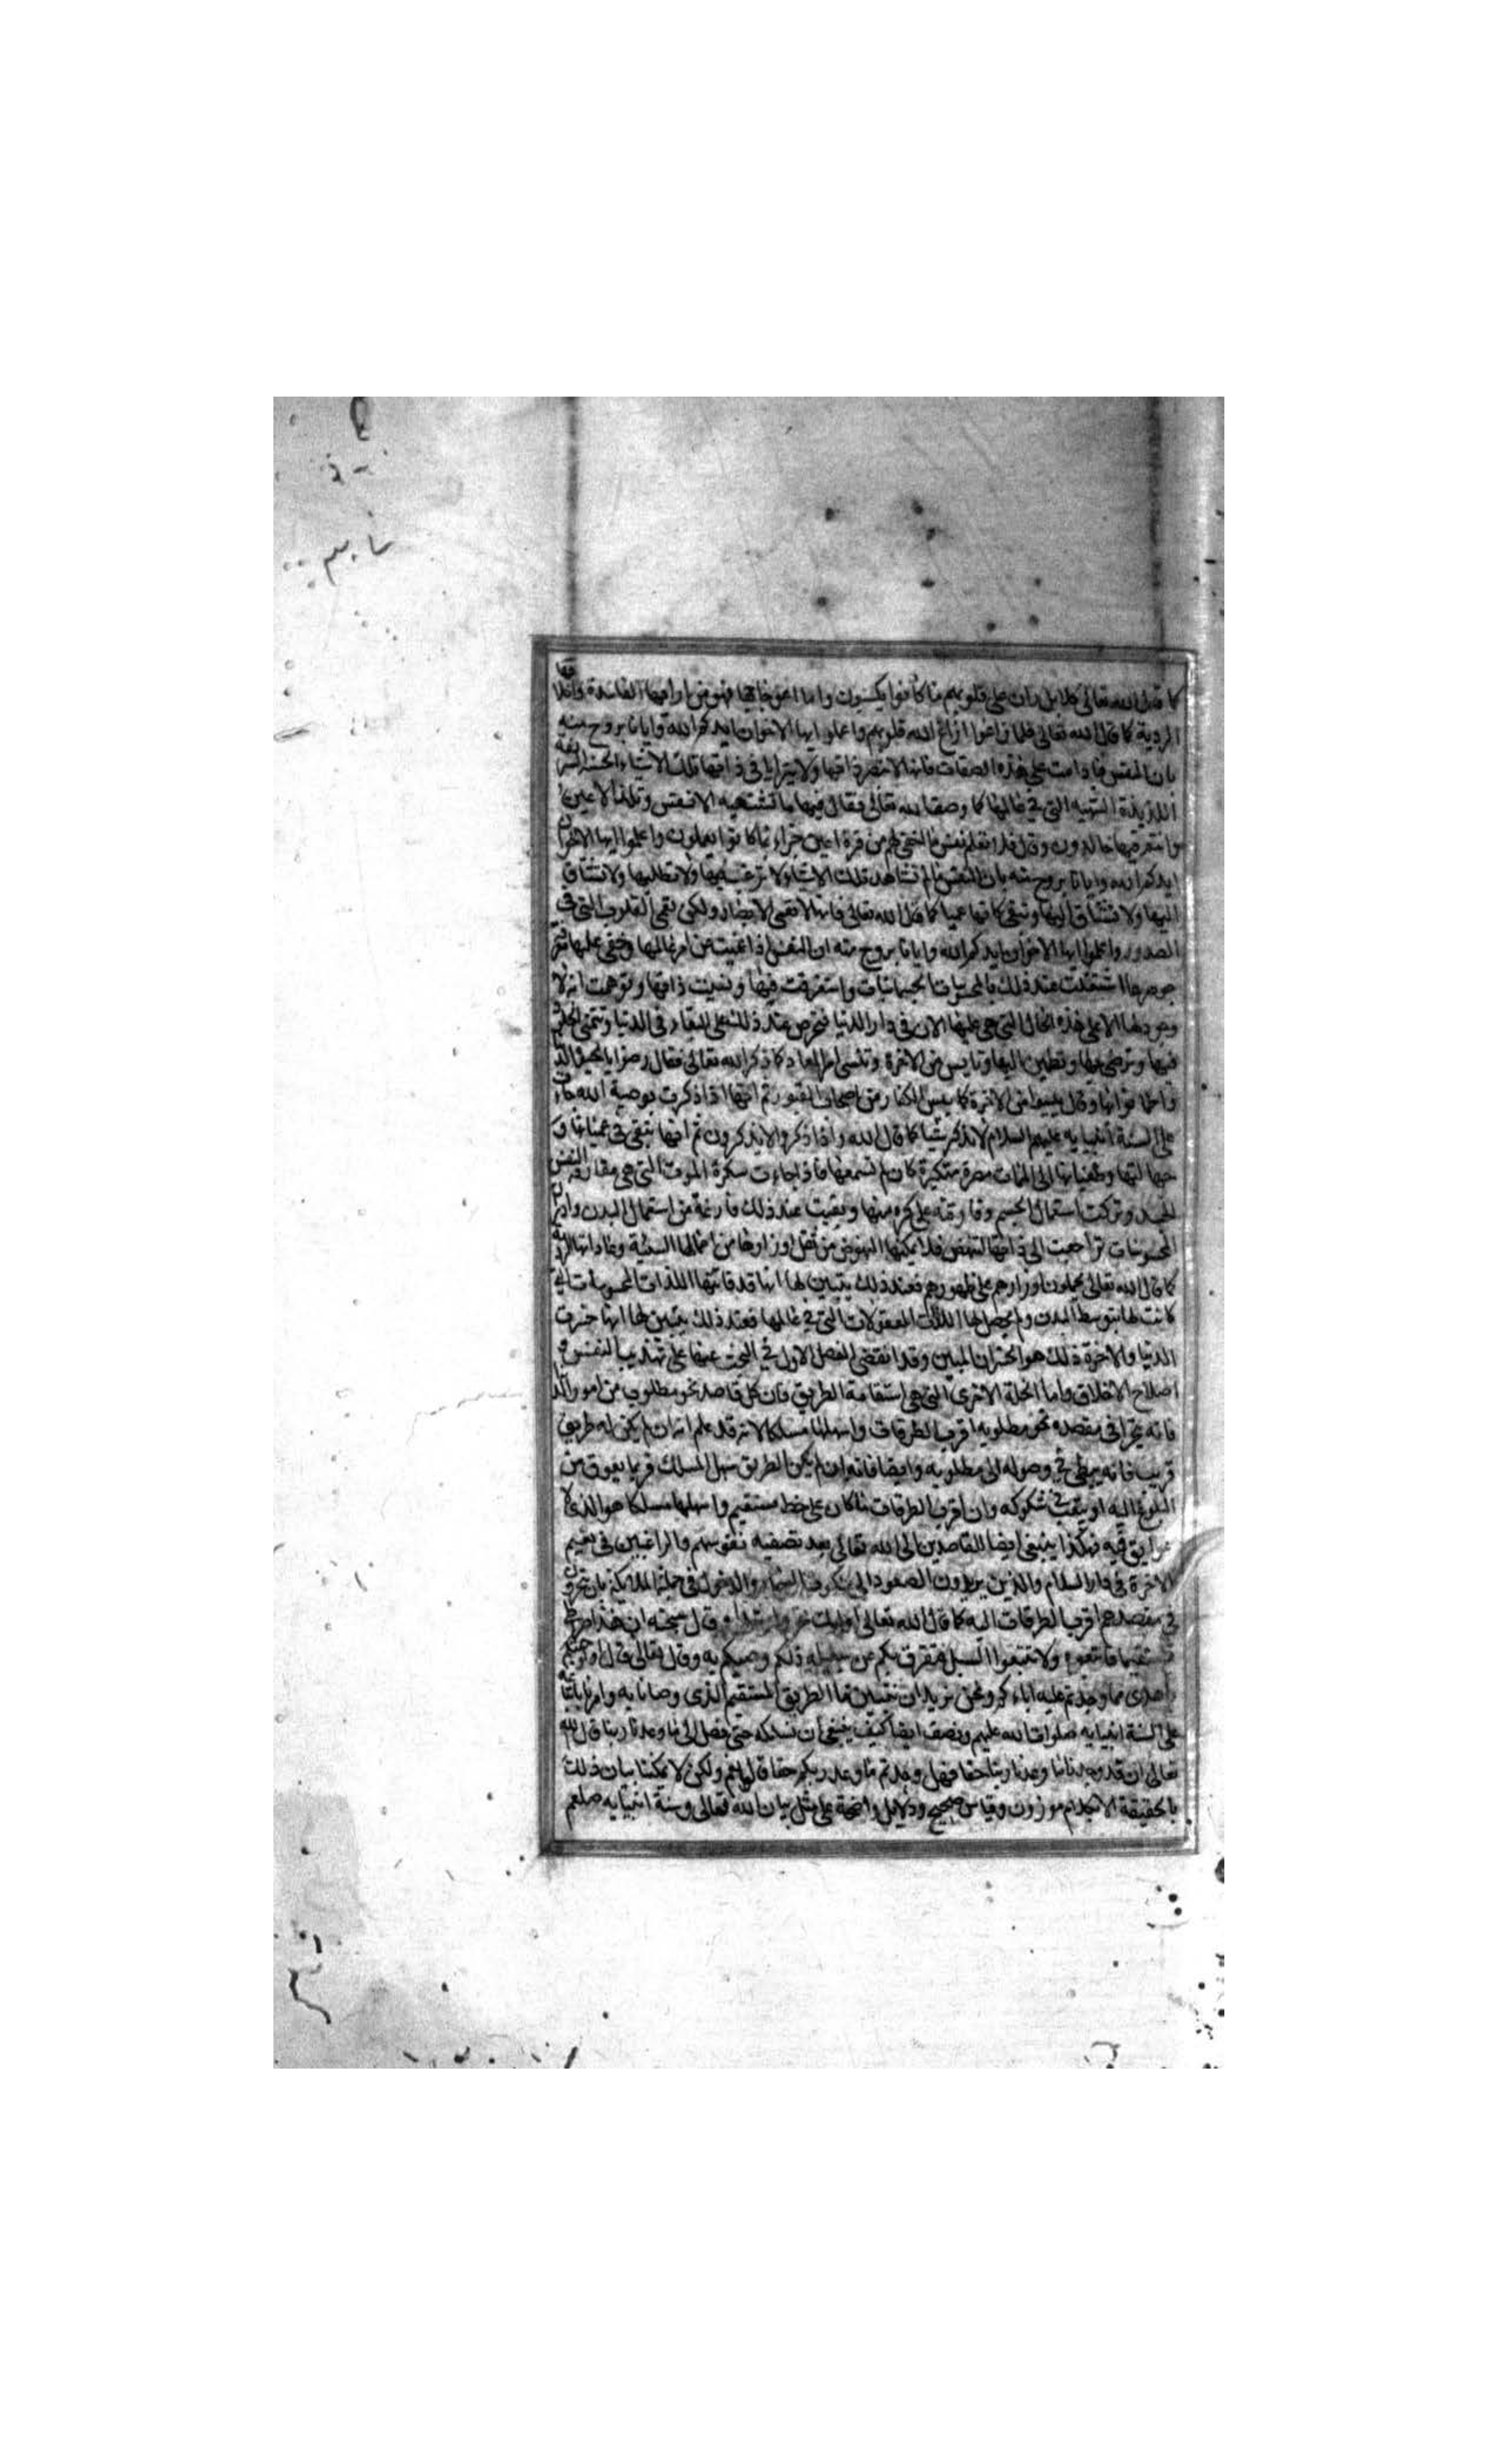 كما قال الله تعالى كلا بل ران على قلوبهم ما كانوا يكسبون واما اعوجاجها فهو من ارائها الفاسدة واخلاقها
الردية كما قال الله تعالى فلما زاغوا ازاغ الله قلوبهم واعلموا ايها الاخوان ايدكم الله وايانا بروح منه
بان النفس ما دامت على هذه الصفات فانها لا تبصر ذاتها ولا يترايا في ذاتها تلك الاشياء الحسنة الشريفة
اللذيذة الشهية التي في عالمها كما وصف الله تعالى فقال فيها ما تشتهيه الانفس وتلذ الاعين
وانتم فيها خالدون وقال فلا تعلم نفس ما اخفي لهم من قرة اعين جزاء بما كانوا يعملون واعلموا ايها الاخوان
ايدكم الله وايانا بروح منه بان النفس ما لم تشاهد تلك الاشياء لا ترغب فيها ولا تطلبها ولا تشتاق
اليها ولا تشتاق اليها وتبقى كانها عميا كما قال الله تعالى فانها لا تعمى الابصار ولكن تعمى القلوب التي في
الصدور واعلموا ايها الاخوان ايدكم الله وايانا بروح منه ان النفس اذا عميت عن امر عالمها وخفي عليها
جوهرها اشتغلت عند ذلك بالمحسوسات الجسمانيات واستغرقت فيها ونسيت ذاتها وتوهمت انه لا
وجود لها الا على هذه الحال التي هي عليها الان في دار الدنيا فتحرص عند ذلك على البقاء في الدنيا وتتمنى الخلود
فيها وترضى بها وتطمئن اليها وتايس من الاخرة وتنسى امر المعاد كما ذكر الله تعالى فقال رضوا بالحيوة الدنيا
واطمانوا بها وقال يئسوا من الاخرة كما يئس الكفار من اصحاب القبور ثم انها اذا ذكرت بوصية الله
على السنة انبيايه عليهم السلام لا تذكر شيا كما قال الله واذا ذكروا لا يذكرون ثم انها تبقى في عميانها و
جهالتها وطغيانها الى الممات مصرة متكبرة كان لم تسمعها فاذا جاءت سكرة الموت التي هي مفارقة النفس
الجسد وتركت استعمال الجسم وفارقته على كره منها وبقيت عند ذلك فارغة من استعمال البدن وادراك
المحسوسات تراجعت الى ذاتها لتنهض فلا يمكنها النهوض من ثقل اوزارها من اعمالها السيئة وعاداتها الردية
كما قال الله تعالى يحملون اوزارهم على ظهورهم فعند ذلك يتبين لها انها قد فاتتها اللذات المحسوسات التي
كانت لها بتوسط البدن ولم يحصل لها اللذات المعقولات التي في عالمها فعند ذلك يتبين لها انها خسرت
الدنيا والاخرة ذلك هو الخسران المبين وقد انقضى الفصل الاول في البحث عنها على تهذيب النفس و
اصلاح الاخلاق واما الخلة الاخرى التي هي استقامة الطريق فان كل قاصد نحو مطلوب من امور الدنيا
فانه يتحرا في مقصده نحو مطلوبه اقرب الطرقات واسهلها مسلكا لانه قد علم انه ان لم يكن له طريق
قريب فانه يبطئ في وصوله الى مطلوبه وايضا فانه ان لم يكن الطريق سهل المسلك فربما يعوق من
البلوغ اليه او يتعب في سلوكه وان اقرب الطرقات ما كان على خط مستقيم واسهلها مسلكا هو الذي لا
عوايق فيه فهكذا ينبغي ايضا للقاصدين الى الله تعالى بعد تصفية نفوسهم والراغبين في نعيم
الاخرة في دار السلام والذين يريدون الصعود الى ملكوت السماء والدخول في جملة الملايكة بان يتحروا
في مقصدهم اقرب الطرقات اليه كما قال الله تعالى اولئك تحروا رشدا وقال سبحنه ان هذا صراطي
مستقيما فاتبعوه ولا تتبعوا السبل فتفرق بكم عن سبيله ذلكم وصيكم به وقال تعالى قال اولو جئتكم
باهدى مما وجدتم عليه اباءكم ونحن نريد ان نتبين ما الطريق المستقيم الذي وصانا به وامرنا باتباعه
على السنة انبيايه صلوات الله عليهم ونصف ايضا كيف ينبغي ان نسلكه حتى نصل الى ما وعدنا ربنا قال الله
تعالى ان قد وجدنا ما وعدنا ربنا حقا فهل وجدتم ما وعد ربكم حقا قالوا نعم ولكن لا يمكننا بيان ذلك
بالحقيقة الا بكلام موزون وقياس صحيح ودلايل واضحة على مثل بيان الله تعالى وسنة انبيايه صلعم